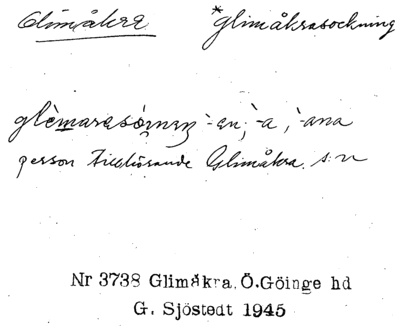 Glimåkra *glimåkrasockning
glèmarasóknıŋ -en, -a, -ana
person tillhörande Glimåkra s:n
Nr 3738 Glimåkra, Ö.Göinge hd
G. Sjöstedt 1945